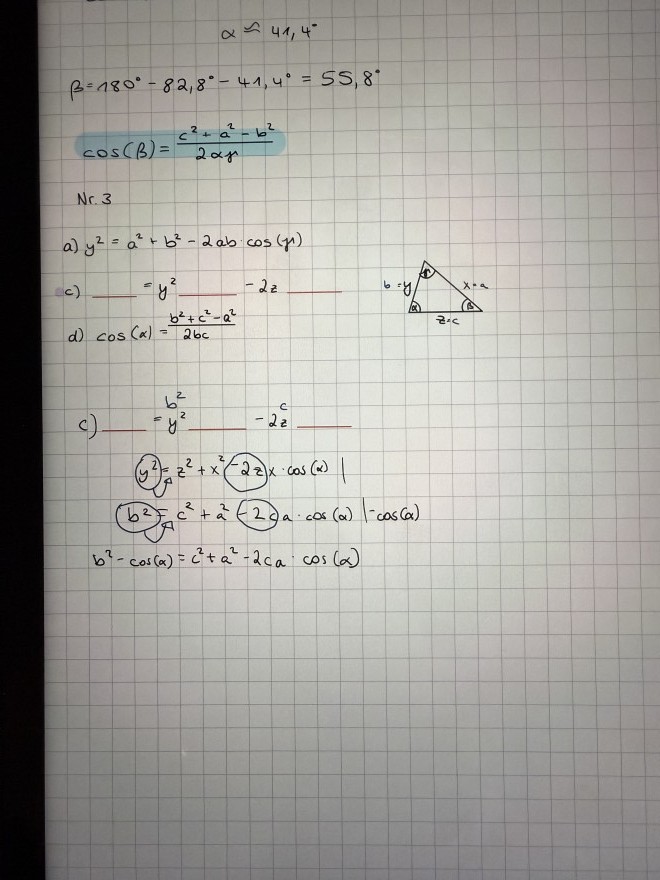 α ≈ 41,4°
β = 180° - 82,8° - 41,4° = 55,8°
cos(β) = (c² + a² - b²) / (2αγ)
Nr. 3
a) y² = a² + b² - 2ab · cos(γ)
c) ____ = y² ____ - 2z ____
d) cos(α) = (b² + c² - a²) / (2bc)
γ
b = y
x = a
α
β
z = c
b²
c
c) ____ = y² ____ - 2z ____
y² = z² + x² - 2zx · cos(α) |
b² = c² + a² - 2ca · cos(α) | -cos(α)
b² - cos(α) = c² + a² - 2ca · cos(α)